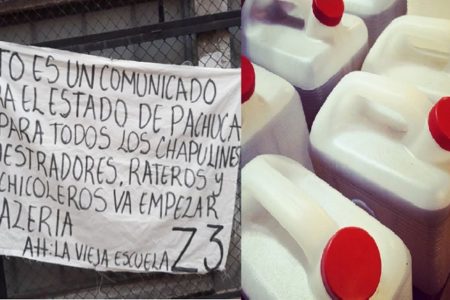 TO ES UN COMUNICADO
RA EL ESTADO DE PACHUCA
PARA TODOS LOS CHAPULINES
UESTRADORES, RATEROS Y
CHICOLEROS VA EMPEZAR
AZERIA
Att: LA VIEJA ESCUELA Z3